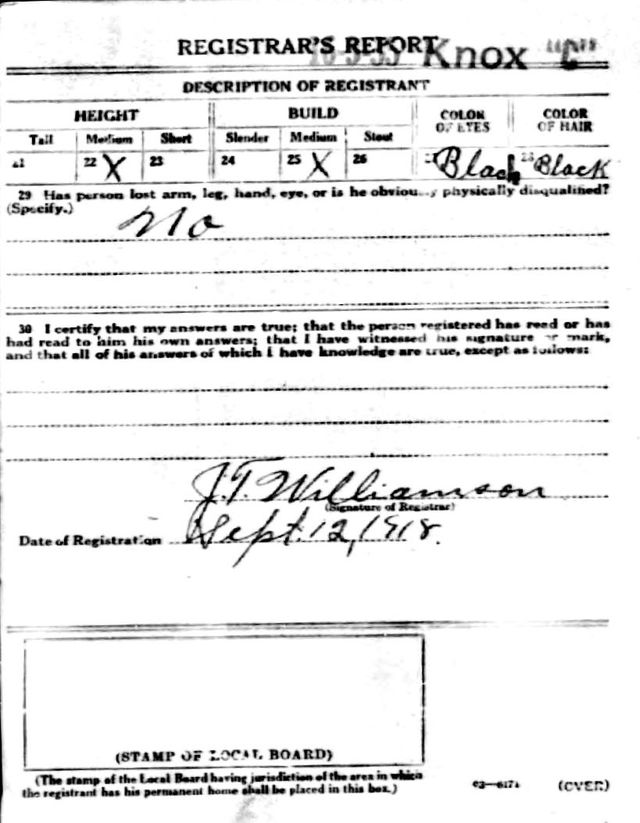 REGISTRAR'S REPORT Knox C
DESCRIPTION OF REGISTRANT
HEIGHT BUILD COLOR OF EYES COLOR OF HAIR
Tall Medium Short Slender Medium Stout
21 22 X 23 24 25 X 26 Black Black
29 Has person lost arm, leg, hand, eye, or is he obviously physically disqualified?
(Specify.)
No
30 I certify that my answers are true; that the person registered has read or has
had read to him his own answers; that I have witnessed his signature or mark,
and that all of his answers of which I have knowledge are true, except as follows:
J.T. Williamson
(Signature of Registrar)
Date of Registration Sept. 12, 1918.
(STAMP OF LOCAL BOARD)
(The stamp of the Local Board having jurisdiction of the area in which
the registrant has his permanent home shall be placed in this box.)
03—6171 (OVER)